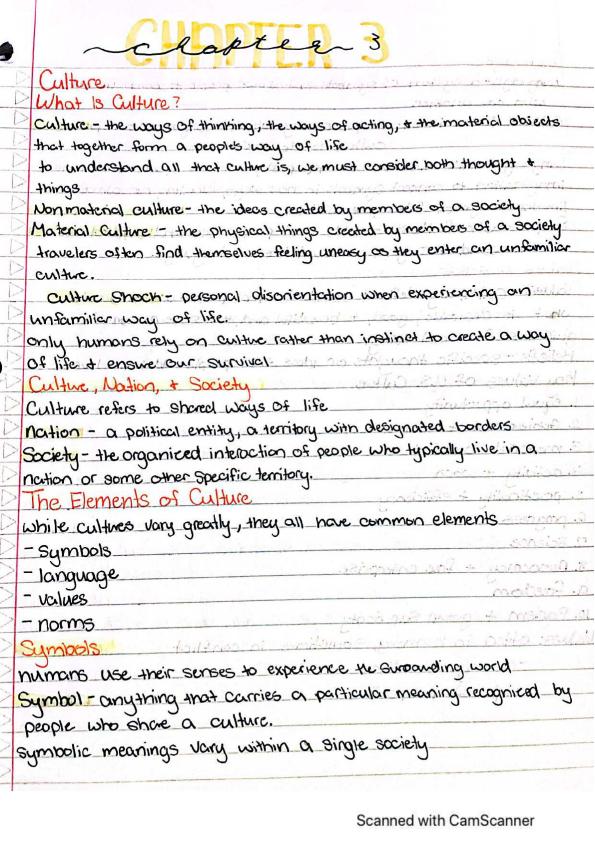 CHAPTER 3
chapter 3
Culture
What Is Culture?
Culture - the ways of thinking, the ways of acting, + the material objects
that together form a people's way of life
to understand all that culture is, we must consider both thought +
things
Nonmaterial culture - the ideas created by members of a society
Material Culture - the physical things created by members of a society
travelers often find themselves feeling uneasy as they enter an unfamiliar
culture.
Culture Shock - personal disorientation when experiencing an
unfamiliar way of life.
only humans rely on culture rather than instinct to create a way
of life + ensure our survival
Culture, Nation, + Society
Culture refers to shared ways of life
Nation - a political entity, a territory with designated borders
Society - the organized interaction of people who typically live in a
nation or some other specific territory.
The Elements of Culture
while cultures vary greatly, they all have common elements
- Symbols
- language
- values
- norms
Symbols
humans use their senses to experience the surrounding world
Symbol - anything that carries a particular meaning recognized by
people who share a culture.
symbolic meanings vary within a single society
Scanned with CamScanner